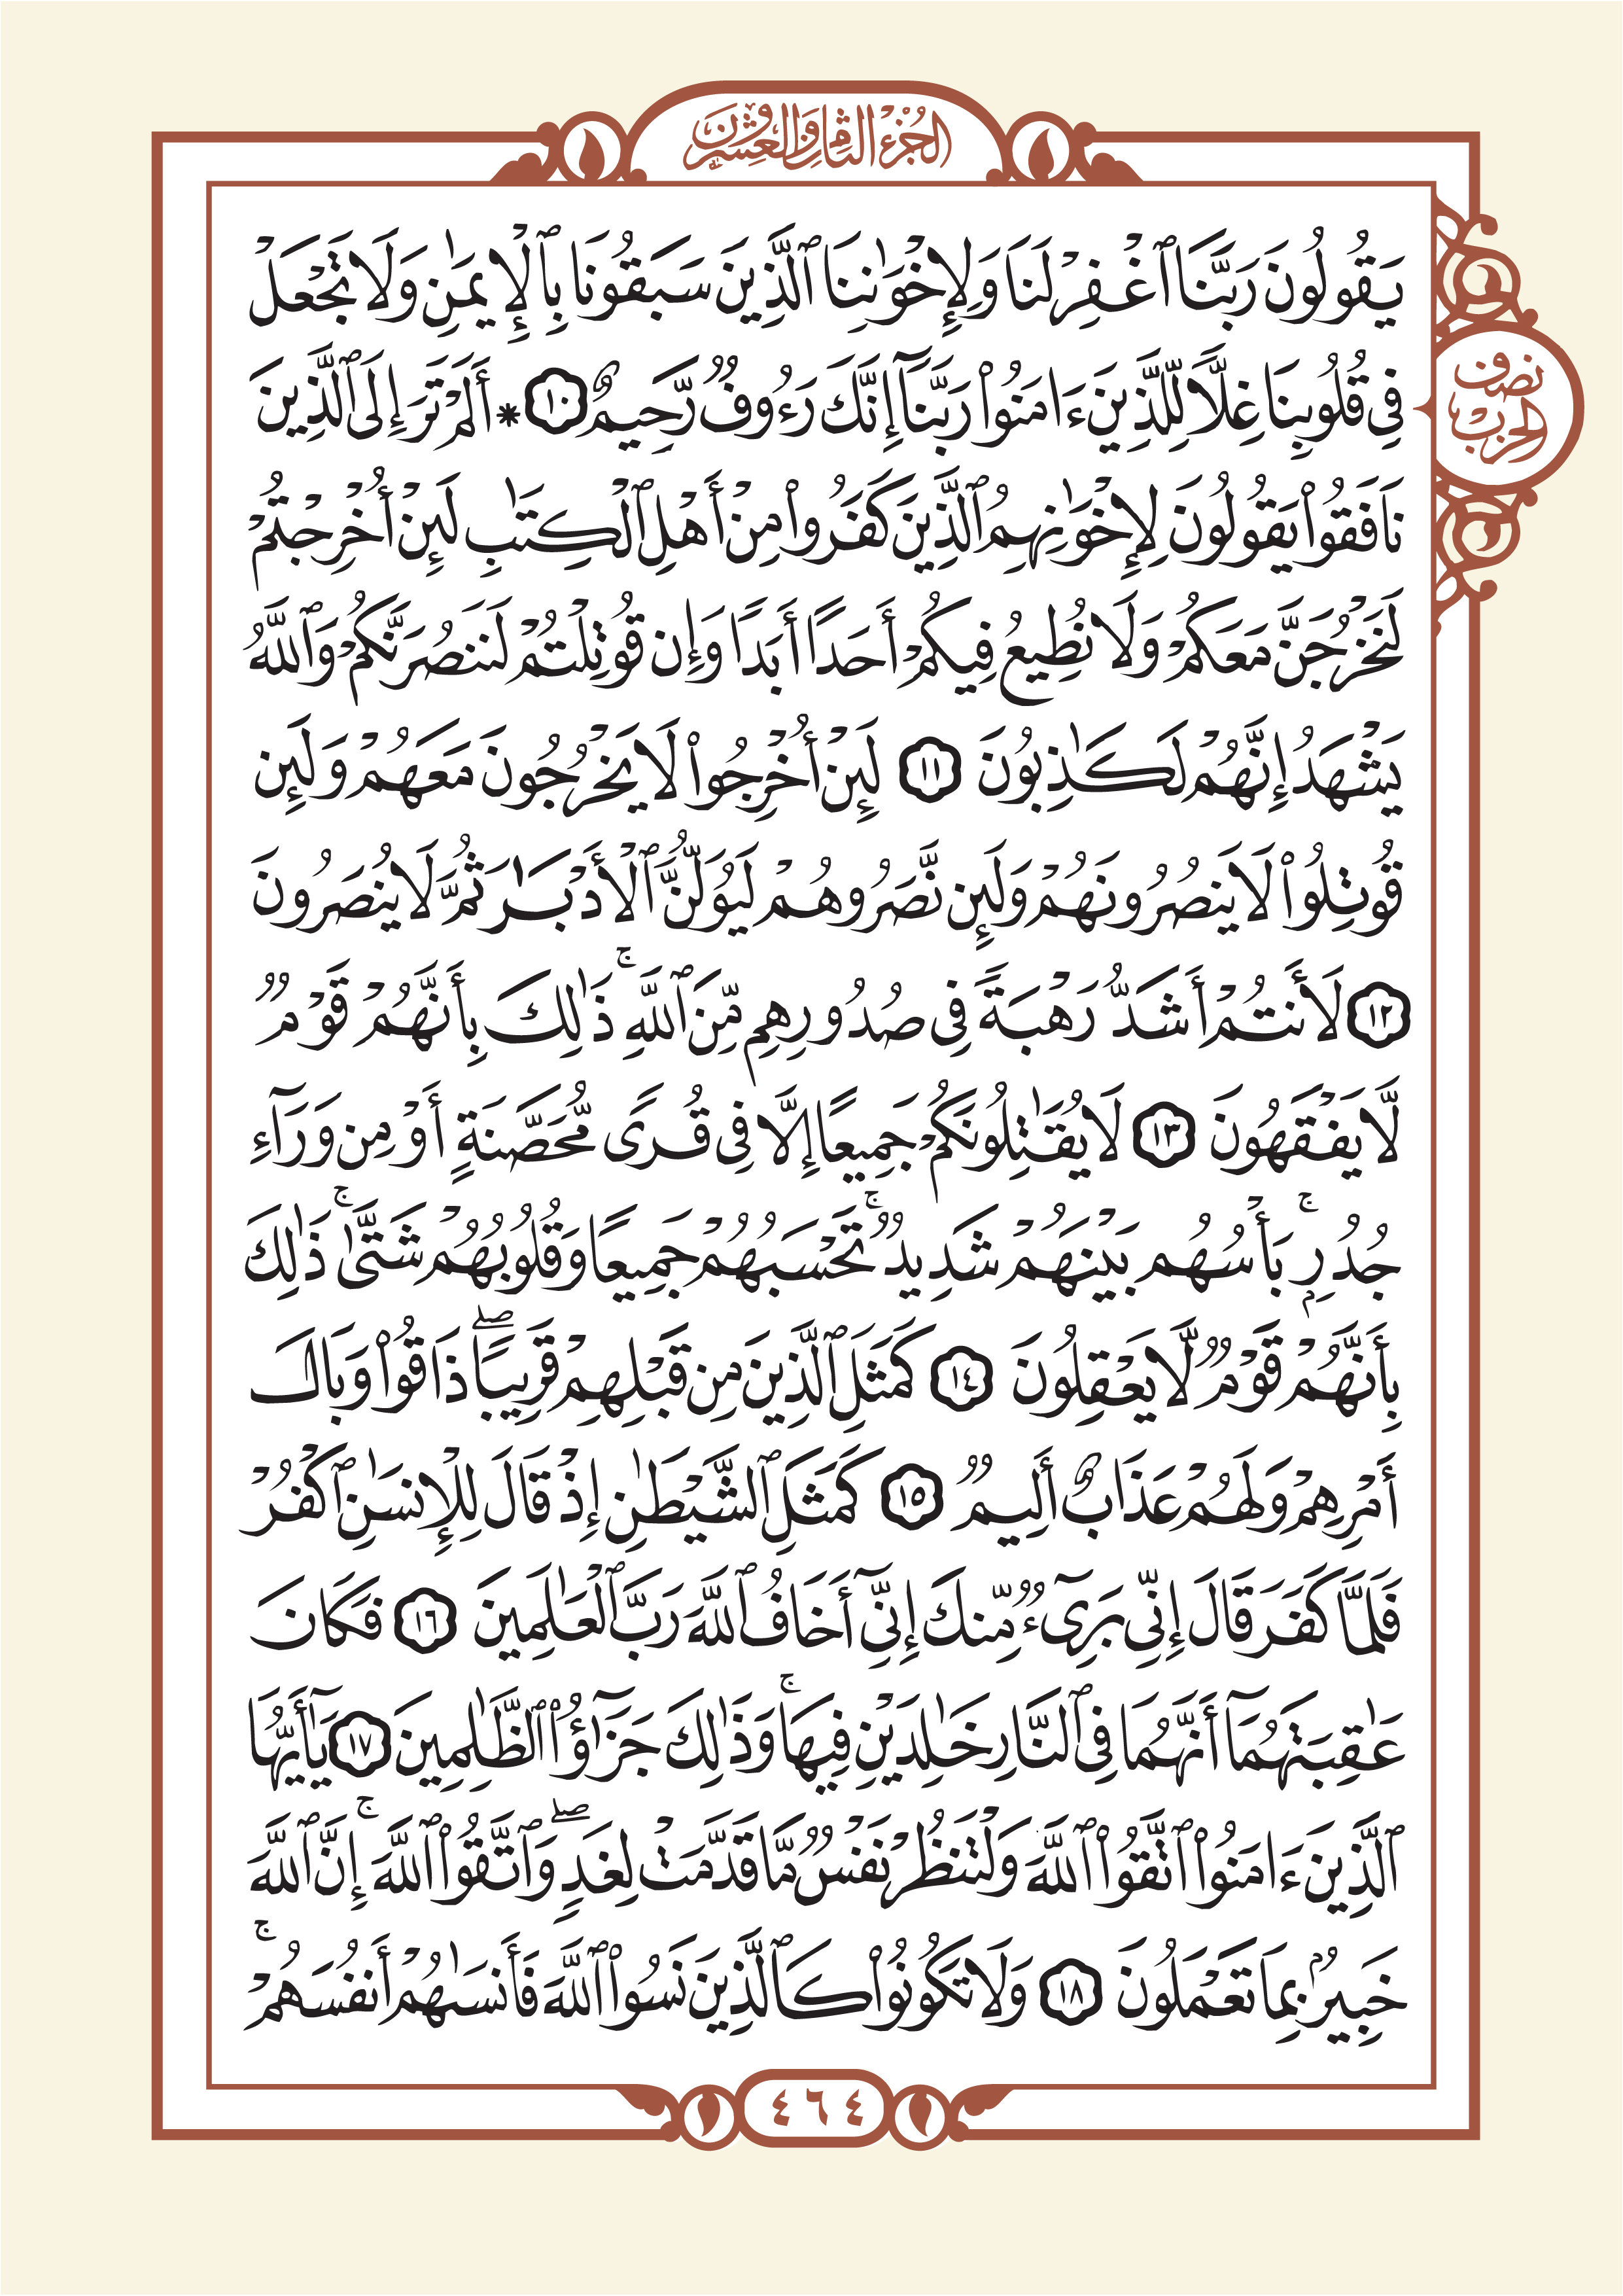 الجزء الثامن والعشرون
يَقُولُونَ رَبَّنَا ٱغۡفِرۡ لَنَا وَلِإِخۡوَٰنِنَا ٱلَّذِينَ سَبَقُونَا بِٱلۡإِيمَٰنِ وَلَا تَجۡعَلۡ
فِي قُلُوبِنَا غِلّٗا لِّلَّذِينَ ءَامَنُواْ رَبَّنَآ إِنَّكَ رَءُوفٞ رَّحِيمٌ ١٠ * أَلَمۡ تَرَ إِلَى ٱلَّذِينَ
نَافَقُواْ يَقُولُونَ لِإِخۡوَٰنِهِمُ ٱلَّذِينَ كَفَرُواْ مِنۡ أَهۡلِ ٱلۡكِتَٰبِ لَئِنۡ أُخۡرِجۡتُمۡ
لَنَخۡرُجَنَّ مَعَكُمۡ وَلَا نُطِيعُ فِيكُمۡ أَحَدًا أَبَدٗا وَإِن قُوتِلۡتُمۡ لَنَنصُرَنَّكُمۡ وَٱللَّهُ
يَشۡهَدُ إِنَّهُمۡ لَكَٰذِبُونَ ١١ لَئِنۡ أُخۡرِجُواْ لَا يَخۡرُجُونَ مَعَهُمۡ وَلَئِن
قُوتِلُواْ لَا يَنصُرُونَهُمۡ وَلَئِن نَّصَرُوهُمۡ لَيُوَلُّنَّ ٱلۡأَدۡبَٰرَ ثُمَّ لَا يُنصَرُونَ
١٢ لَأَنتُمۡ أَشَدُّ رَهۡبَةٗ فِي صُدُورِهِم مِّنَ ٱللَّهِۚ ذَٰلِكَ بِأَنَّهُمۡ قَوۡمٞ
لَّا يَفۡقَهُونَ ١٣ لَا يُقَٰتِلُونَكُمۡ جَمِيعًا إِلَّا فِي قُرٗى مُّحَصَّنَةٍ أَوۡ مِن وَرَآءِ
جُدُرِۭۚ بَأۡسُهُم بَيۡنَهُمۡ شَدِيدٞۚ تَحۡسَبُهُمۡ جَمِيعٗا وَقُلُوبُهُمۡ شَتَّىٰۚ ذَٰلِكَ
بِأَنَّهُمۡ قَوۡمٞ لَّا يَعۡقِلُونَ ١٤ كَمَثَلِ ٱلَّذِينَ مِن قَبۡلِهِمۡ قَرِيبٗاۖ ذَاقُواْ وَبَالَ
أَمۡرِهِمۡ وَلَهُمۡ عَذَابٌ أَلِيمٞ ١٥ كَمَثَلِ ٱلشَّيۡطَٰنِ إِذۡ قَالَ لِلۡإِنسَٰنِ ٱكۡفُرۡ
فَلَمَّا كَفَرَ قَالَ إِنِّي بَرِيٓءٞ مِّنكَ إِنِّيٓ أَخَافُ ٱللَّهَ رَبَّ ٱلۡعَٰلَمِينَ ١٦ فَكَانَ
عَٰقِبَتَهُمَآ أَنَّهُمَا فِي ٱلنَّارِ خَٰلِدَيۡنِ فِيهَاۚ وَذَٰلِكَ جَزَٰٓؤُاْ ٱلظَّٰلِمِينَ ١٧ يَٰٓأَيُّهَا
ٱلَّذِينَ ءَامَنُواْ ٱتَّقُواْ ٱللَّهَ وَلۡتَنظُرۡ نَفۡسٞ مَّا قَدَّمَتۡ لِغَدٖۖ وَٱتَّقُواْ ٱللَّهَۚ إِنَّ ٱللَّهَ
خَبِيرُۢ بِمَا تَعۡمَلُونَ ١٨ وَلَا تَكُونُواْ كَٱلَّذِينَ نَسُواْ ٱللَّهَ فَأَنسَىٰهُمۡ أَنفُسَهُمۡۚ
نصف
الحزب
٤٦٤